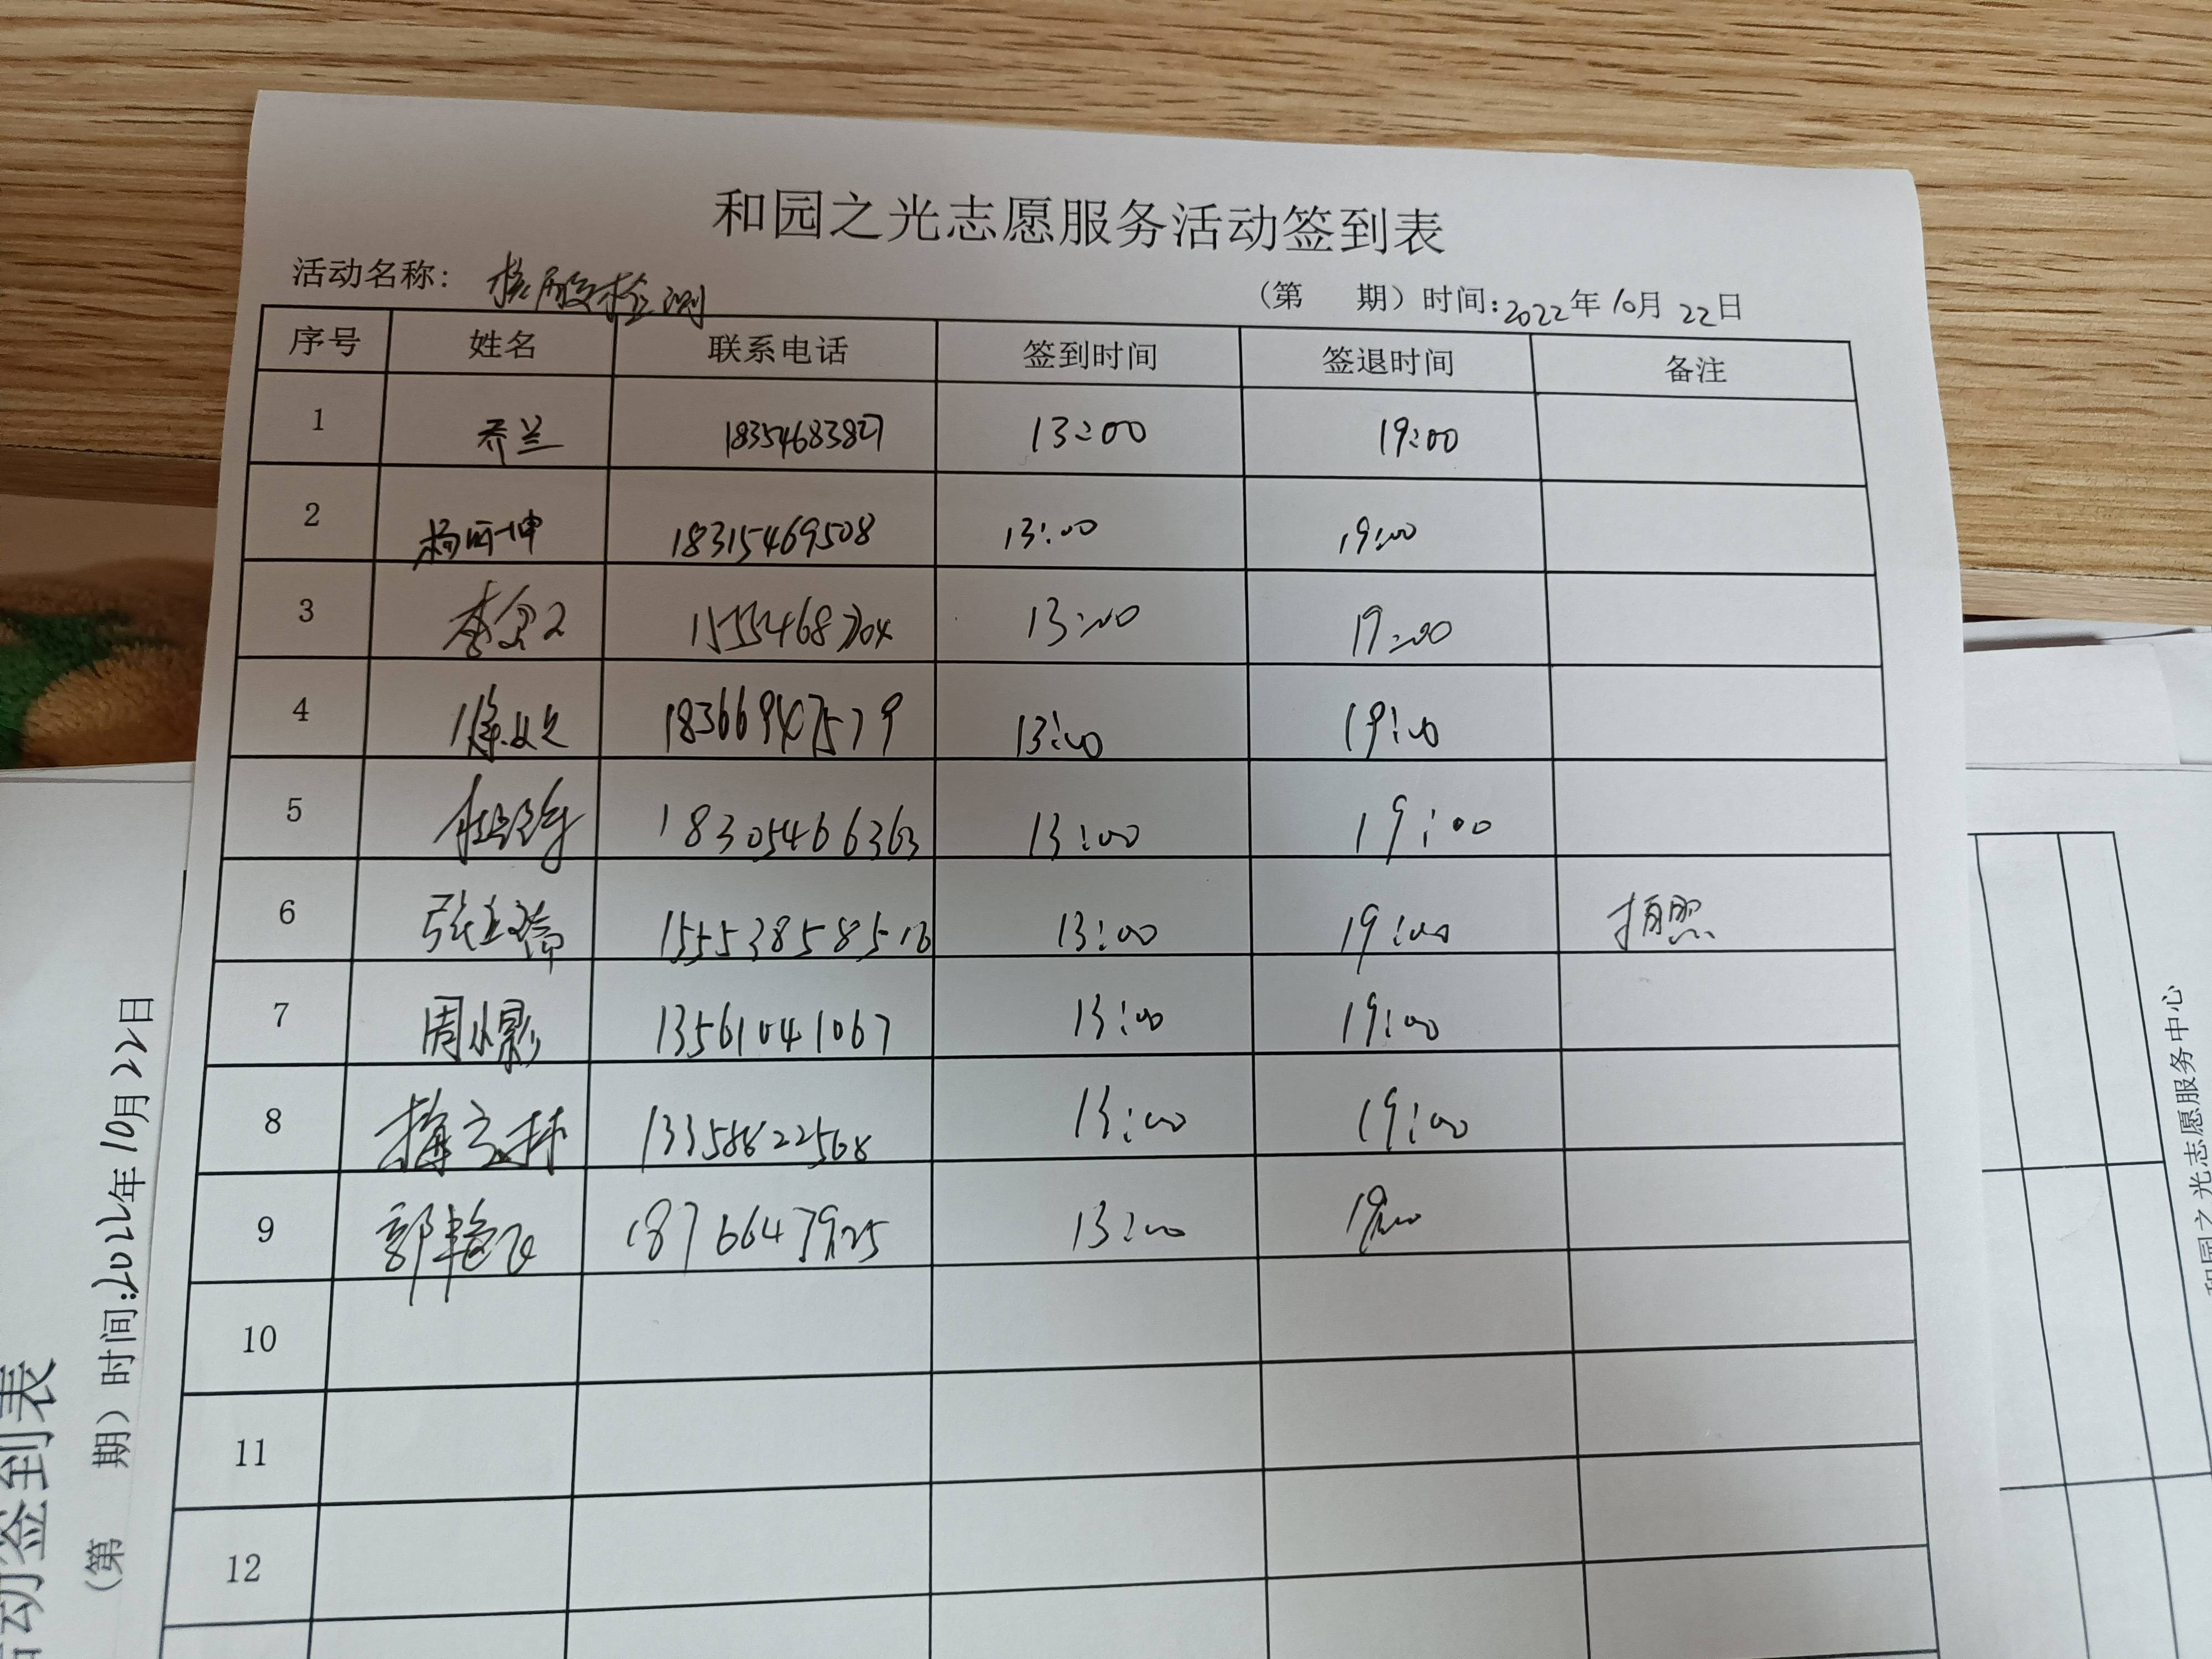 和园之光志愿服务活动签到表
活动名称：核酸检测 （第 期）时间：2022年10月22日
序号 姓名 联系电话 签到时间 签退时间 备注
1 乔兰 18354683827 13:00 19:00
2 18315469508 13:00 19:00
3 1555468704 13:00 19:00
4 18366947579 13:00 19:00
5 18305466363 13:00 19:00
6 13:00 19:00 拍照
7 周小影 13561041067 13:00 19:00
8 梅立林 13:00 19:00
9 郭艳飞 13:00 19:00
10
11
12
（第 期）时间：2022年10月22日
活动签到表
和园之光志愿服务中心